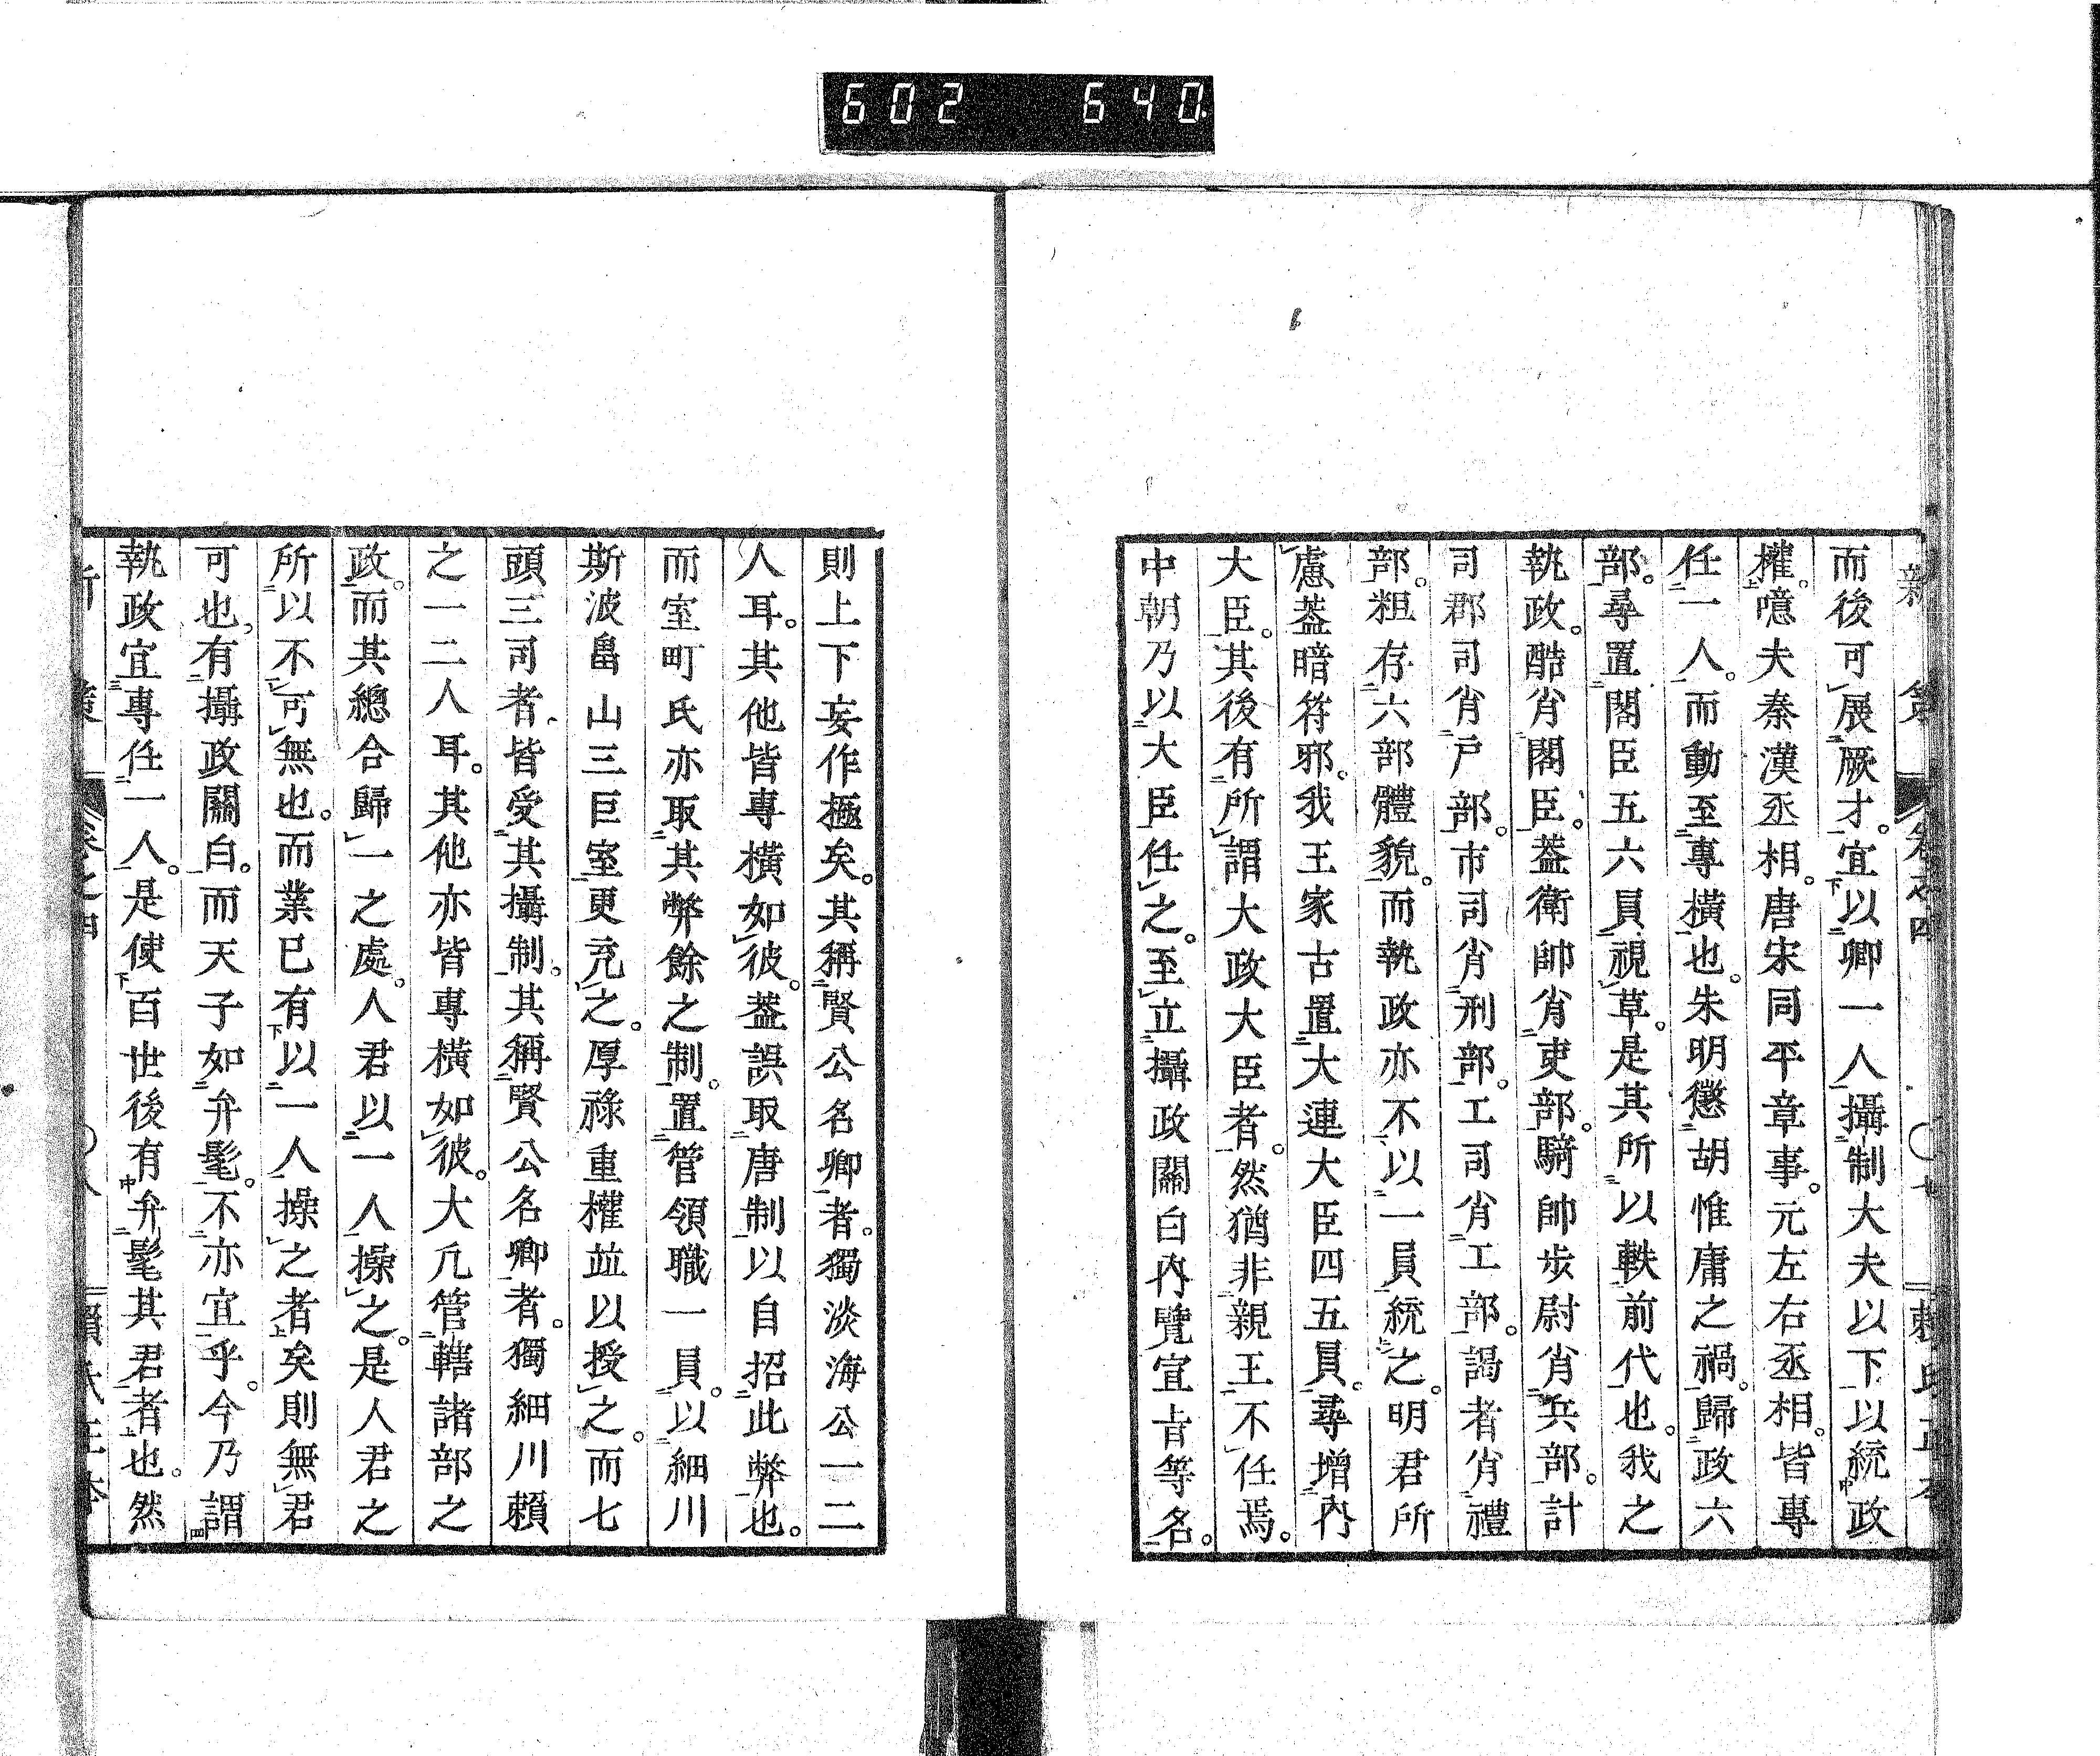 602 640
新策 卷之四 〇七 賴氏正本
而後可展厥才。宜以卿一人攝制大夫以下以統政
權。噫夫秦漢丞相。唐宋同平章事。元左右丞相。皆專
任一人。而動至專橫也。朱明懲胡惟庸之禍。歸政六
部。尋置閣臣五六員視草。是其所以軼前代也。我之
執政。酷肖閣臣。蓋衛帥肖吏部。騎帥步尉肖兵部。計
司郡司肖戶部。市司肖刑部。工司肖工部。謁者肖禮
部。粗存六部體貌。而執政亦不以一員統之。明君所
慮蓋暗符邪。我王家古置大連大臣四五員。尋增內
大臣。其後有所謂大政大臣者。然猶非親王不任焉。
中朝乃以大臣任之。至立攝政關白內覽宜旨等名。
則上下妄作極矣。其稱賢公名卿者。獨淡海公一二
人耳。其他皆專橫如彼。蓋誤取唐制以自招此弊也。
而室町氏亦取其弊餘之制。置管領職一員。以細川
斯波畠山三巨室更充之。厚祿重權並以授之。而七
頭三司者。皆受其攝制。其稱賢公名卿者。獨細川賴
之一二人耳。其他亦皆專橫如彼。大凡管轄諸部之
政。而其總合歸一之處。人君以一人操之。是人君之
所以不可無也。而業已有以一人操之者矣則無君
可也。有攝政關白。而天子如弁髦。不亦宜乎。今乃謂
執政宜專任一人。是使百世後有弁髦其君者也。然
新策 卷之四 〇八 賴氏正本